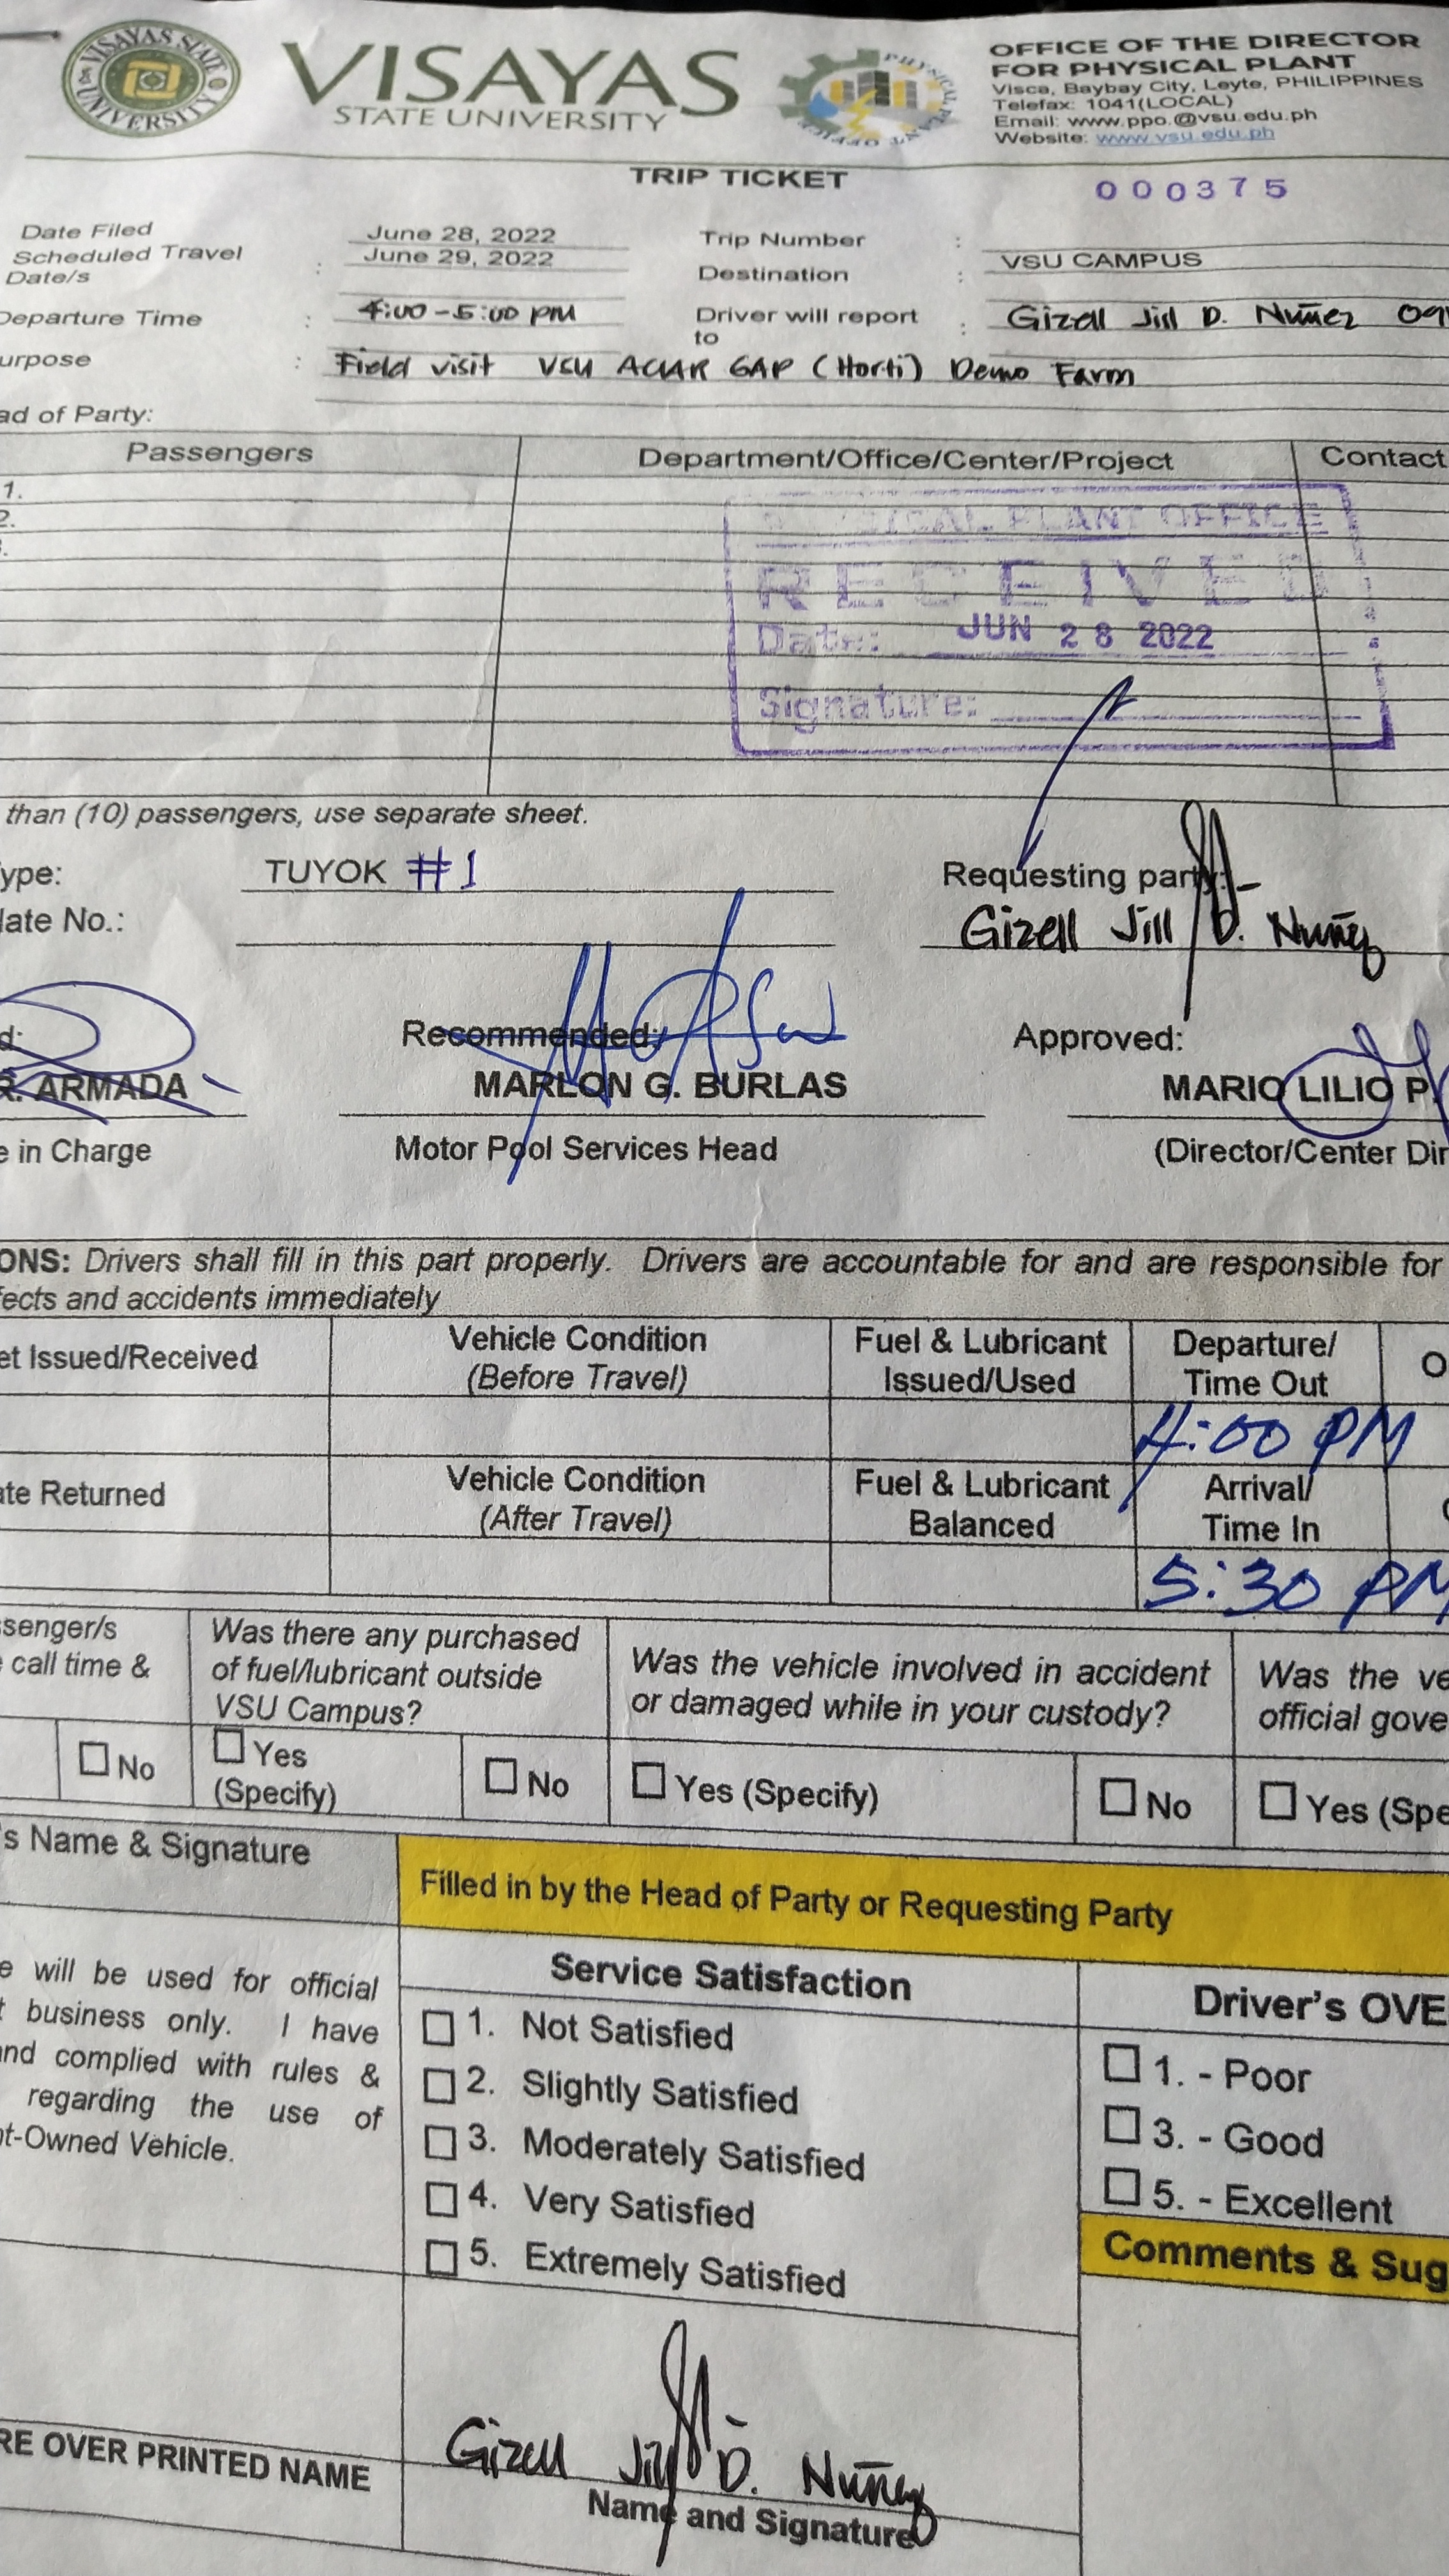 VISAYAS STATE UNIVERSITY
VISAYAS
STATE UNIVERSITY
PHYSICAL PLANT OFFICE
OFFICE OF THE DIRECTOR
FOR PHYSICAL PLANT
Visca, Baybay City, Leyte, PHILIPPINES
Telefax: 1041(LOCAL)
Email: www.ppo.@vsu.edu.ph
Website: www.vsu.edu.ph
TRIP TICKET
000375
Date Filed June 28, 2022 Trip Number :
Scheduled Travel Date/s : June 29, 2022 Destination : VSU CAMPUS
Departure Time : 4:00-5:00 PM Driver will report to : Gizell Jill D. Nuñez 09
urpose : Field visit VSU ACIAR GAP (Horti) Demo Farm
ad of Party:
Passengers Department/Office/Center/Project Contact
1.
2.
PLANT OFFICE
RECEIVED
Date: JUN 28 2022
Signature:
than (10) passengers, use separate sheet.
ype: TUYOK #1 Requesting party:
late No.: Gizell Jill D. Nuñez
d: Recommended: Approved:
R. ARMADA MARLON G. BURLAS MARIO LILIO P.
e in Charge Motor Pool Services Head (Director/Center Dir
ONS: Drivers shall fill in this part properly. Drivers are accountable for and are responsible for
fects and accidents immediately
et Issued/Received Vehicle Condition (Before Travel) Fuel & Lubricant Issued/Used Departure/ Time Out O
4:00 PM
ate Returned Vehicle Condition (After Travel) Fuel & Lubricant Balanced Arrival/ Time In
5:30 PM
ssenger/s
call time &
Was there any purchased
of fuel/lubricant outside
VSU Campus?
Was the vehicle involved in accident
or damaged while in your custody?
Was the ve
official gove
No Yes (Specify) No Yes (Specify) No Yes (Spe
's Name & Signature
Filled in by the Head of Party or Requesting Party
e will be used for official
t business only. I have
nd complied with rules &
regarding the use of
t-Owned Vehicle.
Service Satisfaction
1. Not Satisfied
2. Slightly Satisfied
3. Moderately Satisfied
4. Very Satisfied
5. Extremely Satisfied
Driver's OVE
1. - Poor
3. - Good
5. - Excellent
Comments & Sug
RE OVER PRINTED NAME
Gizell Jill D. Nuñez
Name and Signature